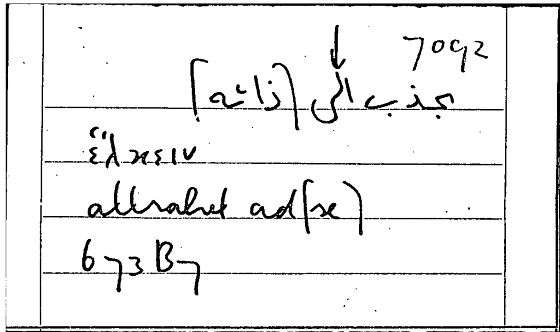 7092
↓
يجذب الى [ذاته]
ἕλκειν
attrahet ad [se]
673 B7